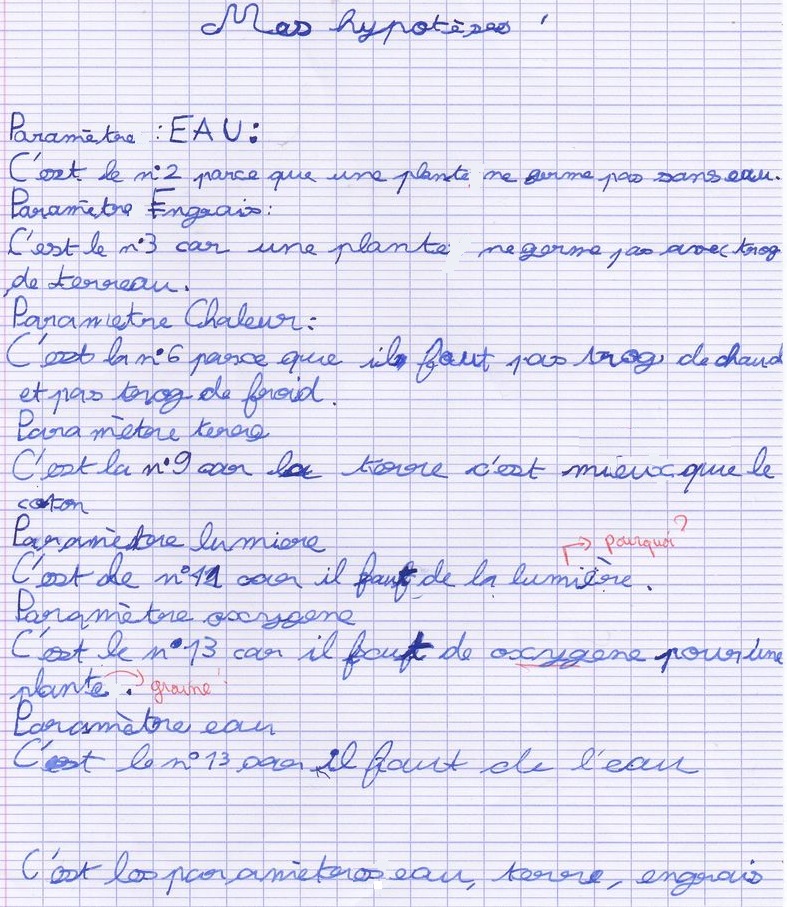 Mes hypotèses
Paramètre : EAU :
C'est le n°2 parce que une plante ne germe pas sans eau.
Paramètre Engrais :
C'est le n°3 car une plante ne germe pas avec trog
de terreau.
Parametre Chaleur :
C'est la n°6 parce que il faut pas trog de chaud
et pas trog de froid.
Paramètre terre
C'est la n°9 car la terre c'est mieux que le
coton
Paramètre lumiere
pourquoi?
C'est de n°11 car il faut de la lumière.
Paramètre oxcygene
C'est le n°13 car il faut de oxcygene pour une
plante. graine
Paramètre eau
C'est le n°13 car il faut de l'eau
C'est les paramètres eau, terre, engrais